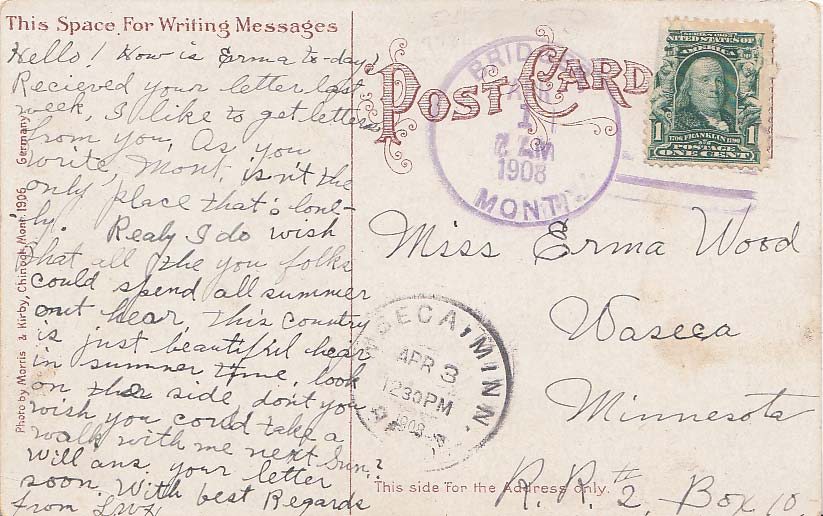 This Space For Writing Messages
Hello! How is Erma to-day?
Recieved your letter last
week, I like to get letters
from you. As you
write, Mont. isn't the
only place that's lone-
ly. Realy I do wish
that all the you folks
could spend all summer
out hear, this country
is just beautiful hear
in summer time, look
on the side don't you
wish you could take a
walk with me next Sun.?
Will ans. your letter
soon. With best Regards
from
Photo by Morris & Kirby, Chinook, Mont. 1906 Germany
POST CARD
BRIDG
APR
1
AM
1908
MONT.
SERIES 1902
UNITED STATES OF
AMERICA
1706 FRANKLIN 1790
POSTAGE
1 ONE CENT 1
Miss Erma Wood
Waseca
Minnesota
R. R. 2, Box 10.
WASECA, MINN.
APR 3
1230PM
1908
This side for the Address only.